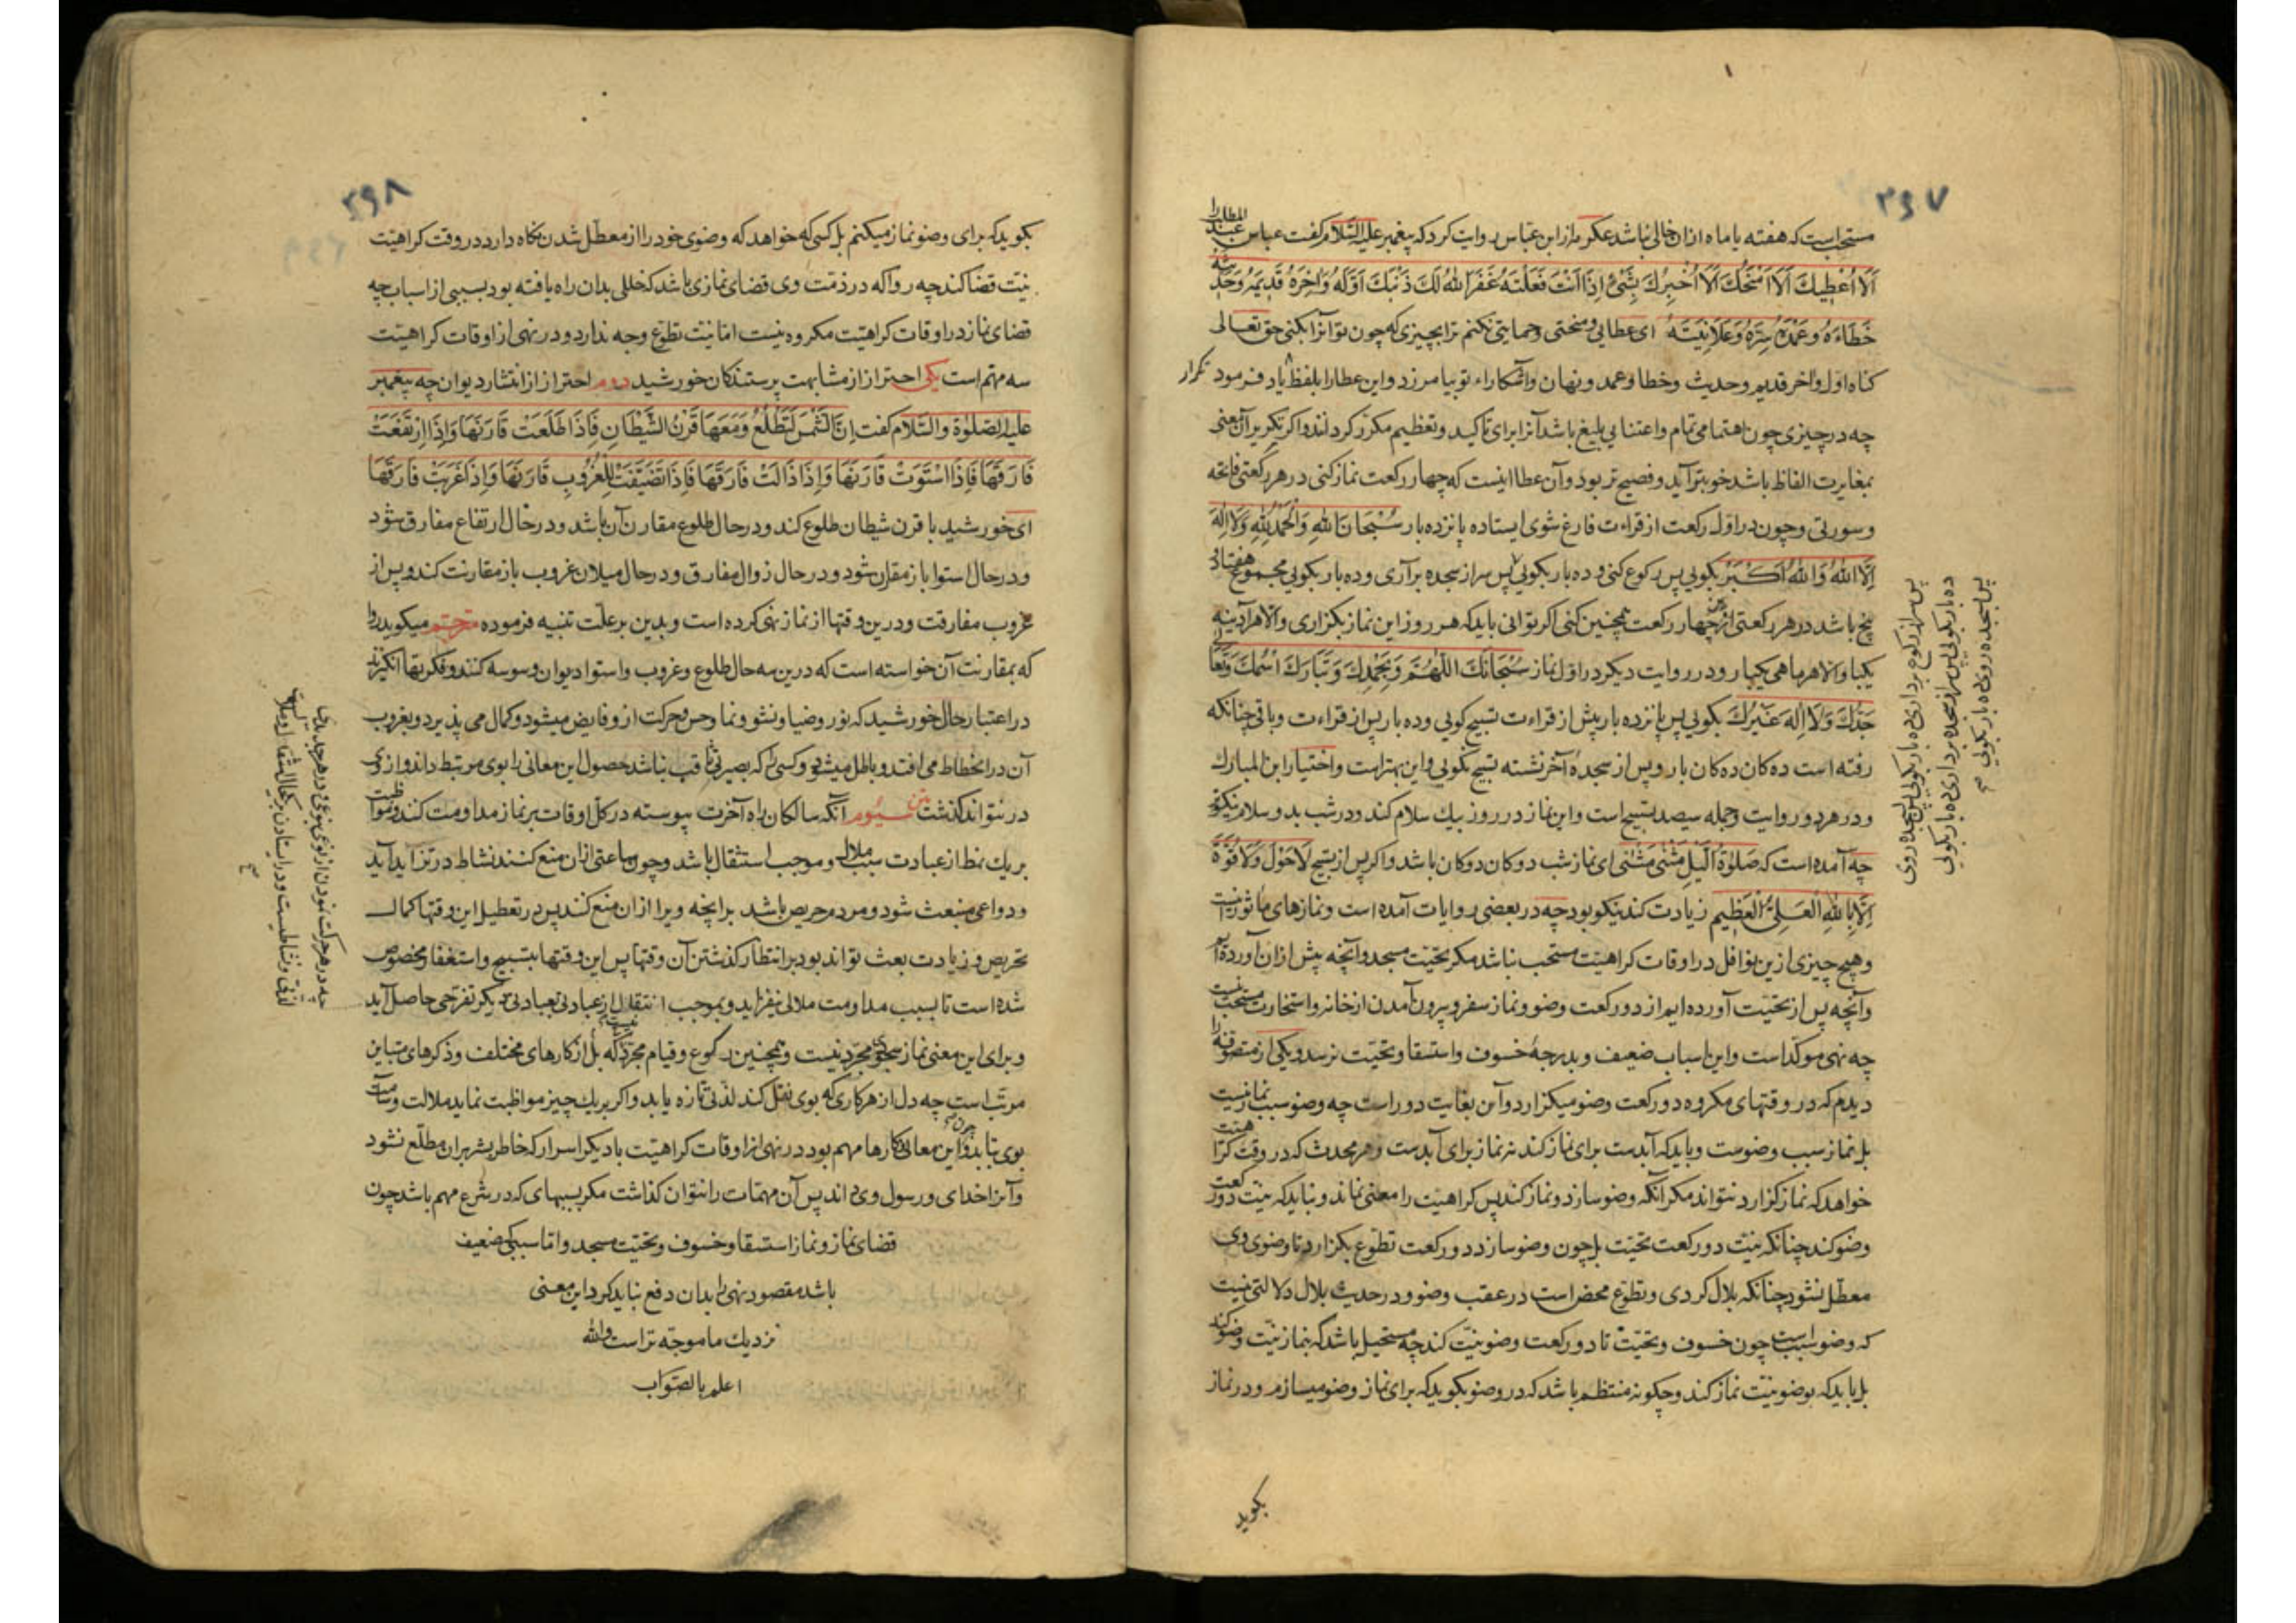 ۳۹۷
مستحب است که هفته یا ماه ازان خالی نباشد عکرمه از ابن عباس روایت کرد که پیغمبر علیه السلام گفت عباس عبد المطلب را
اَلَا اُعْطِیكَ اَلَا اَمْنَحُكَ اَلَا اُخْبِرُكَ بِشَیْءٍ اِذَا اَنْتَ فَعَلْتَهُ غَفَرَ اللهُ لَكَ ذَنْبَكَ اَوَّلَهُ وَاٰخِرَهُ قَدِیمَهُ وَحَدِیثَهُ
خَطَاءَهُ وَعَمْدَهُ سِرَّهُ وَعَلَانِیَتَهُ ای عطایی و منحتی و حمایتی نکنم ترا بچیزی که چون تو آنرا بکنی حق تعالی
کناه اول و آخر قدیم و حدیث و خطا و عمد و نهان و آشکاراء تو بیامرزد و این عطارا بلفظ یاد فرمود
تکرار
چه در چیزی چون اهتمامی تمام و اعتنایی بلیغ باشد آنرا برای تاکید و تعظیم مکرر کردانند و اکر تکریر آن معنی
بمغایرت الفاظ باشد خوبتر آید و فصیح تر بود و آن عطا اینست که چهار رکعت نماز کنی در هر رکعتی فاتحه
و سورتی و چون در اول رکعت از قراءت فارغ شوی ایستاده پانزده بار سُبْحَانَ اللهِ وَالْحَمْدُ لِلهِ وَلَا اِلٰهَ
اِلَّا اللهُ وَاللهُ اَكْبَرُ بکویی پس رکوع کنی و ده بار بکویی پس سر از سجده برآری و ده بار بکویی مجموع هفتاد و
پنج باشد در هر رکعتی از چهار رکعت همچنین کنی اکر توانی باید که هر روز این نماز بکزاری و الا هر آدینه
یکبار و الا هر ماهی یکبار و در روایت دیکر در اول نماز سُبْحَانَكَ اللّٰهُمَّ وَبِحَمْدِكَ وَتَبَارَكَ اسْمُكَ وَتَعَالٰی
جَدُّكَ وَلَا اِلٰهَ غَیْرُكَ بکویی پس پانزده بار پیش از قراءت تسبیح کویی و ده بار پس از قراءت و باقی چنانکه
رفته است ده کان ده کان بار و پس از سجدهٔ آخر نشسته تسبیح نکویی و این بهتر است و اختیار ابن المبارك
و در هر دو روایت جمله سیصد تسبیح است و این نماز در روز بیك سلام کند و در شب بدو سلام نیکو
چه آمده است که صَلٰوةُ الَّیْلِ مَثْنٰی مَثْنٰی ای نماز شب دو کان دو کان باشد و اکر پس از تسبیح لَاحَوْلَ وَلَاقُوَّةَ
اِلَّا بِاللهِ الْعَلِیِّ الْعَظِیمِ زیادت کند نیکو بود چه در بعضی روایات آمده است و نمازهای ماثور اینست
و هیچ چیزی ازین نوافل در اوقات کراهیّت مستحب نباشد مکر تحیّت مسجد و آنچه پیش ازان آورده آ
و آنچه پس از تحیّت آورده ایم از دو رکعت وضو و نماز سفر و بیرون آمدن از خانه و استخارت مستحب نیست
چه نهی موکّد است و این اسباب ضعیف و بدرجهٔ خسوف و استسقا و تحیّت نرسد و یکی از متصوفه را
دیدم که در وقتهای مکروه دو رکعت وضو میکزارد و آن بغایت دور است چه وضو سبب نماز نیست
بل نماز سبب وضوست و باید که آبدست برای نماز کند نه نماز برای آبدست و هر محدث که در وقت کراهیت
خواهد که نماز کزارد نتواند مکر آنکه وضو سازد و نماز کند پس کراهیّت را معنی نماند و نباید که نیّت دو رکعت
وضو کند چنانکه نیّت دو رکعت تحیّت بل چون وضو سازد دو رکعت تطوّع بکزارد تا وضوی وی
معطّل نشود چنانکه بلال کردی و تطوّع محض است در عقب وضو و در حدیث بلال دلالتی نیست
که وضو سبب است چون خسوف و تحیّت تا دو رکعت وضو نیّت کند چه مستحیل باشد که بنماز نیّت وضو کند
بل باید که بوضو نیّت نماز کند و چکونه منتظم باشد که در وضو بکوید که برای نماز وضو میسازم و در نماز
بکوید
پس سر از رکوع برداری و ده بار بکویی پس سجده روی
ده بار بکویی پس سر از سجده برداری ده بار بکویی
پس بسجده روی ده بار بکویی
۳۹۸
بکوید که برای وضو نماز میکنم بل کسی که خواهد که وضوی خود را از معطّل شدن نکاه دارد در وقت کراهیّت
نیّت قضا کند چه روا که در ذمّت وی قضای نمازی باشد که خللی بدان راه یافته بود بسببی از اسباب چه
قضای نماز در اوقات کراهیّت مکروه نیست امّا نیّت تطوّع وجه ندارد و در نهی از اوقات کراهیّت
سه مهم است یکی احتراز از مشابهت پرستندکان خورشید دوم احتراز از انتشار دیوان چه پیغمبر
علیه الصلوٰة والسّلام کفت اِنَّ الشَّمْسَ لَتَطْلُعُ وَمَعَهَا قَرْنُ الشَّیْطَانِ فَاِذَا طَلَعَتْ قَارَنَهَا وَاِذَا ارْتَفَعَتْ
فَارَقَهَا فَاِذَا اسْتَوَتْ قَارَنَهَا وَاِذَا ذَالَتْ فَارَقَهَا فَاِذَا تَضَیَّفَتْ لِلْغُرُوبِ قَارَنَهَا وَاِذَا غَرَبَتْ فَارَقَهَا
ای خورشید با قرن شیطان طلوع کند و در حال طلوع مقارن آن باشد و در حال ارتفاع مفارق شود
و در حال استوا باز مقارن شود و در حال زوال مفارق و در حال میلان غروب باز مقارنت کند و پس از
غروب مفارقت و درین وقتها از نماز نهی کرده است و بدین بر علّت تنبیه فرموده مترجم میکوید روا
که بمقارنت آن خواسته است که درین سه حال طلوع و غروب و استوا دیوان وسوسه کنند و فکرتها انکیزند
در اعتبار حال خورشید که نور و ضیا و نشو و نما و حس و حرکت ازو فایض میشود و کمال می پذیرد و بغروب
آن در انحطاط می افتد و باطل میشود و کسی را که بصیرتی ثاقب نباشد حصول این معانی را بوی مرتبط داند و از وی
در نتواند کذشت سیّوم آنکه سالکان راه آخرت پیوسته در کلّ اوقات بر نماز مداومت کنند و مواظبت
بر یك نمط از عبادت سبب ملال و موجب استثقال باشد و چون ساعتی ازان منع کنند نشاط در تزاید آید
و دواعی منبعث شود و مردم حریص باشد برانچه ویرا ازان منع کند پس در تعطیل این وقتها کمال
تحریص و زیادت بعث تواند بود بر انتظار کذشتن آن وقتها پس این وقتها بتسبیح و استغفار مخصوص
شده است تا بسبب مداومت ملالی نیفزاید و بموجب انتقال از عبادتی بعبادتی دیکر تفرّجی حاصل آید
و برای این معنی نماز سجود مجرّد نیست و همچنین رکوع و قیام مجرّد نیست که بل از کارهای مختلف و ذکرهای متباین
مرتّب است چه دل از هر کاری که بوی نقل کند لذّتی تازه یابد و اکر بر یك چیز مواظبت نماید ملالت و سآمت
بوی یابد و این معانی کارها مهم بود در نهی از اوقات کراهیّت با دیکر اسرار که خاطر بشر بران مطّلع نشود
و آنرا خدای و رسول وی داند پس آن مهمّات را نتوان کذاشت مکر بسببهای که در شرع مهم باشد چون
قضای نماز و نماز استسقا و خسوف و تحیّت مسجد و امّا سببی که ضعیف
باشد مقصود نهی را بدان دفع نباید کرد این معنی
نزدیك ما موجّه تر است والله
اعلم بالصّواب
چه در هر حرکت نمودن از نوعی بنوعی و در هر جدیدی
لذّتی و نشاطیست و در ایستادن بر حال